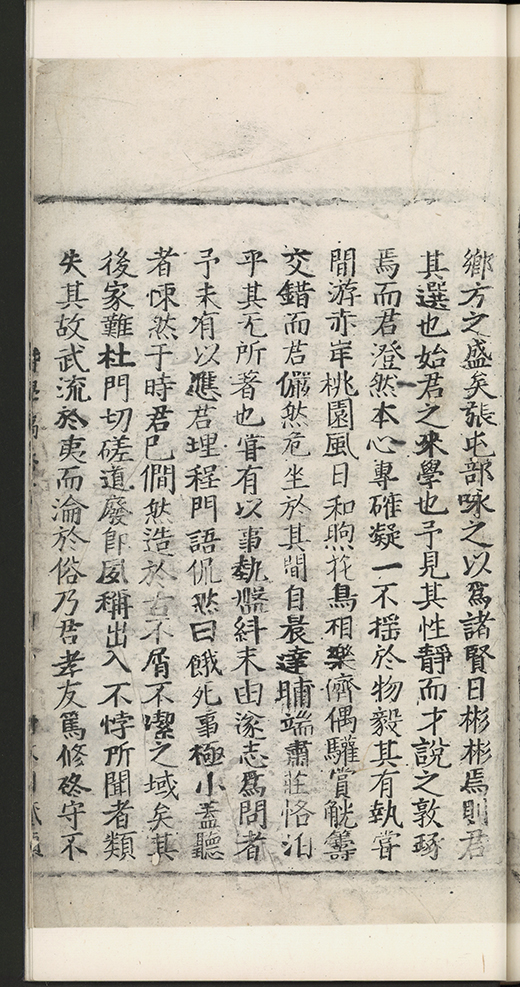 鄉方之盛矣張屯部咏之以爲諸賢日彬彬焉則君
其選也始君之來學也予見其性靜而才說之敦琢
焉而君澄然本心專確凝一不搖於物毅其有執嘗
間游赤岸桃園風日和煦花鳥相樂儕偶驩賞觥籌
交錯而君儼然危坐於其間自晨達晡端肅莊恪泊
乎其无所著也嘗有以事執盤糾未由遂志爲問者
予未有以應君理程門語侃然曰餓死事極小蓋聽
者悚然于時君已僩然造於古不屑不潔之域矣其
後家難杜門切磋道廢即夙稱出入不悖所聞者類
失其故武流於夷而淪於俗乃君孝友篤修咚守不